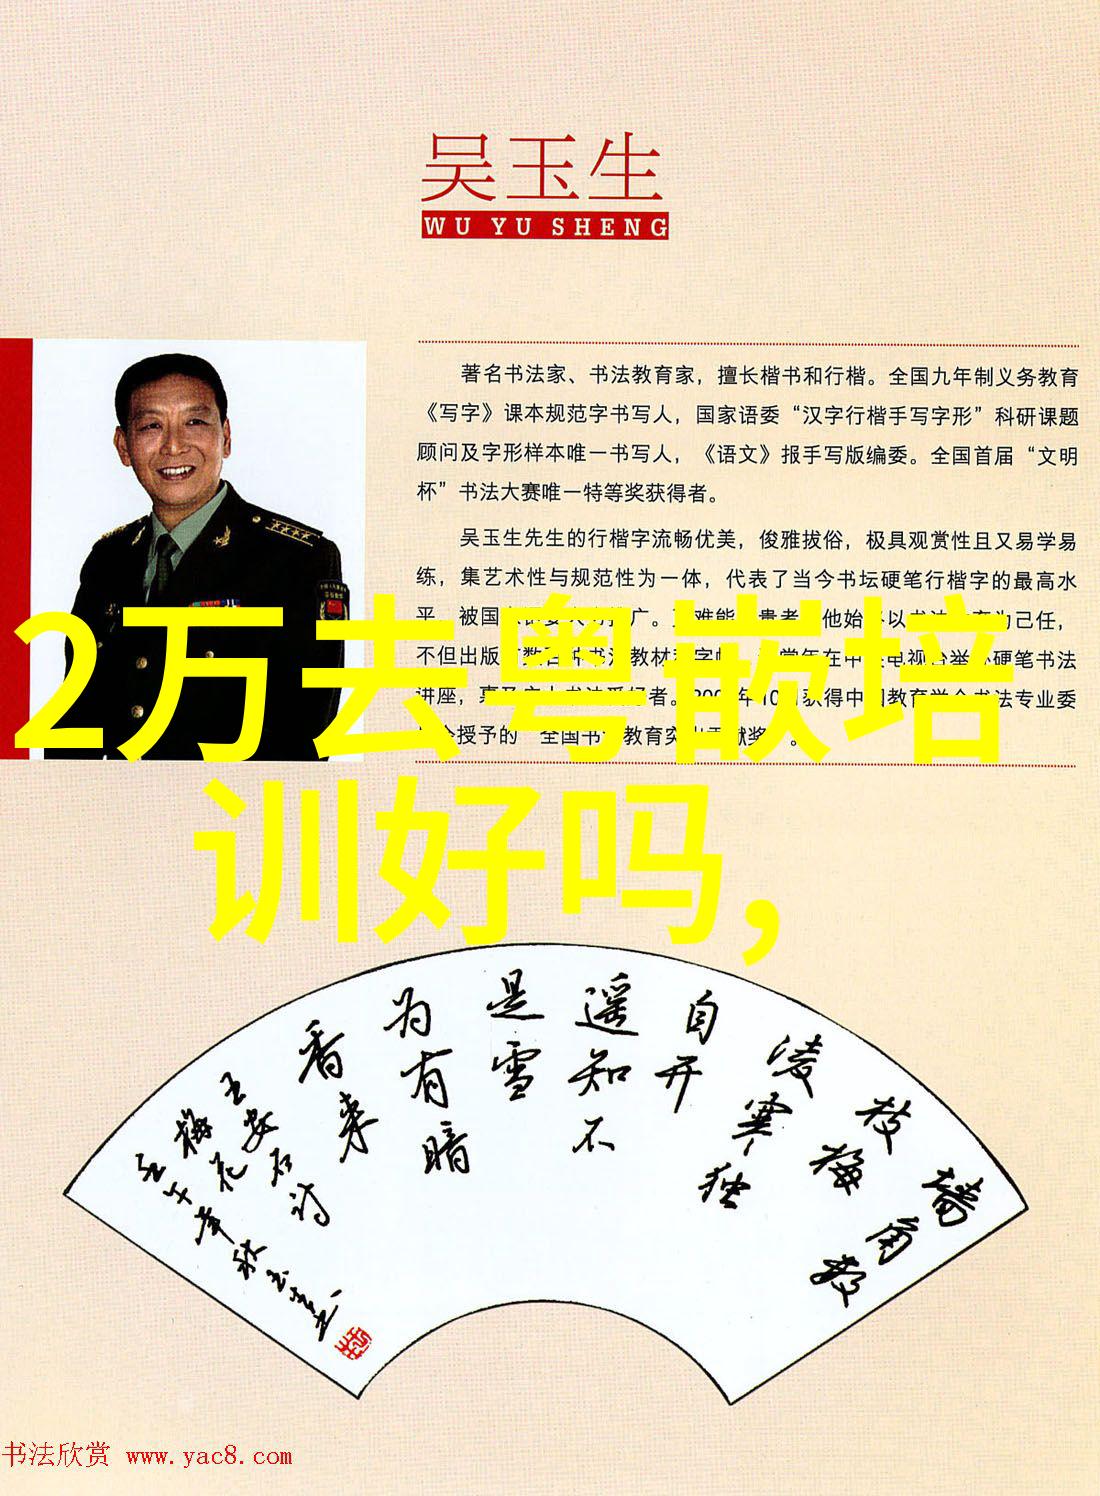 吴玉生
WU YU SHENG
著名书法家、书法教育家，擅长楷书和行楷。全国九年制义务教育
《写字》课本规范字书写人，国家语委“汉字行楷手写字形”科研课题
顾问及字形样本唯一书写人，《语文》报手写版编委。全国首届“文明
杯”书法大赛唯一特等奖获得者。
吴玉生先生的行楷字流畅优美，俊雅拔俗，极具观赏性且又易学易
练，集艺术性与规范性为一体，代表了当今书坛硬笔行楷字的最高水
平，被国
广。
难能
贵者
他始
以书法
为己任，
不但出版
数
书法教材
字帖
常年在中
电视台举办硬笔书法
讲座，
10
获得中
教育学会书法专业委
会授予的“全国书
教育突
献奖
2万去粤嵌培
训好吗,
墙角数
枝梅
凌寒独
自开
遥知不
是雪
为有暗
香来
王安石诗
梅花
壬午年秋玉生
书法欣赏 www.yac8.com